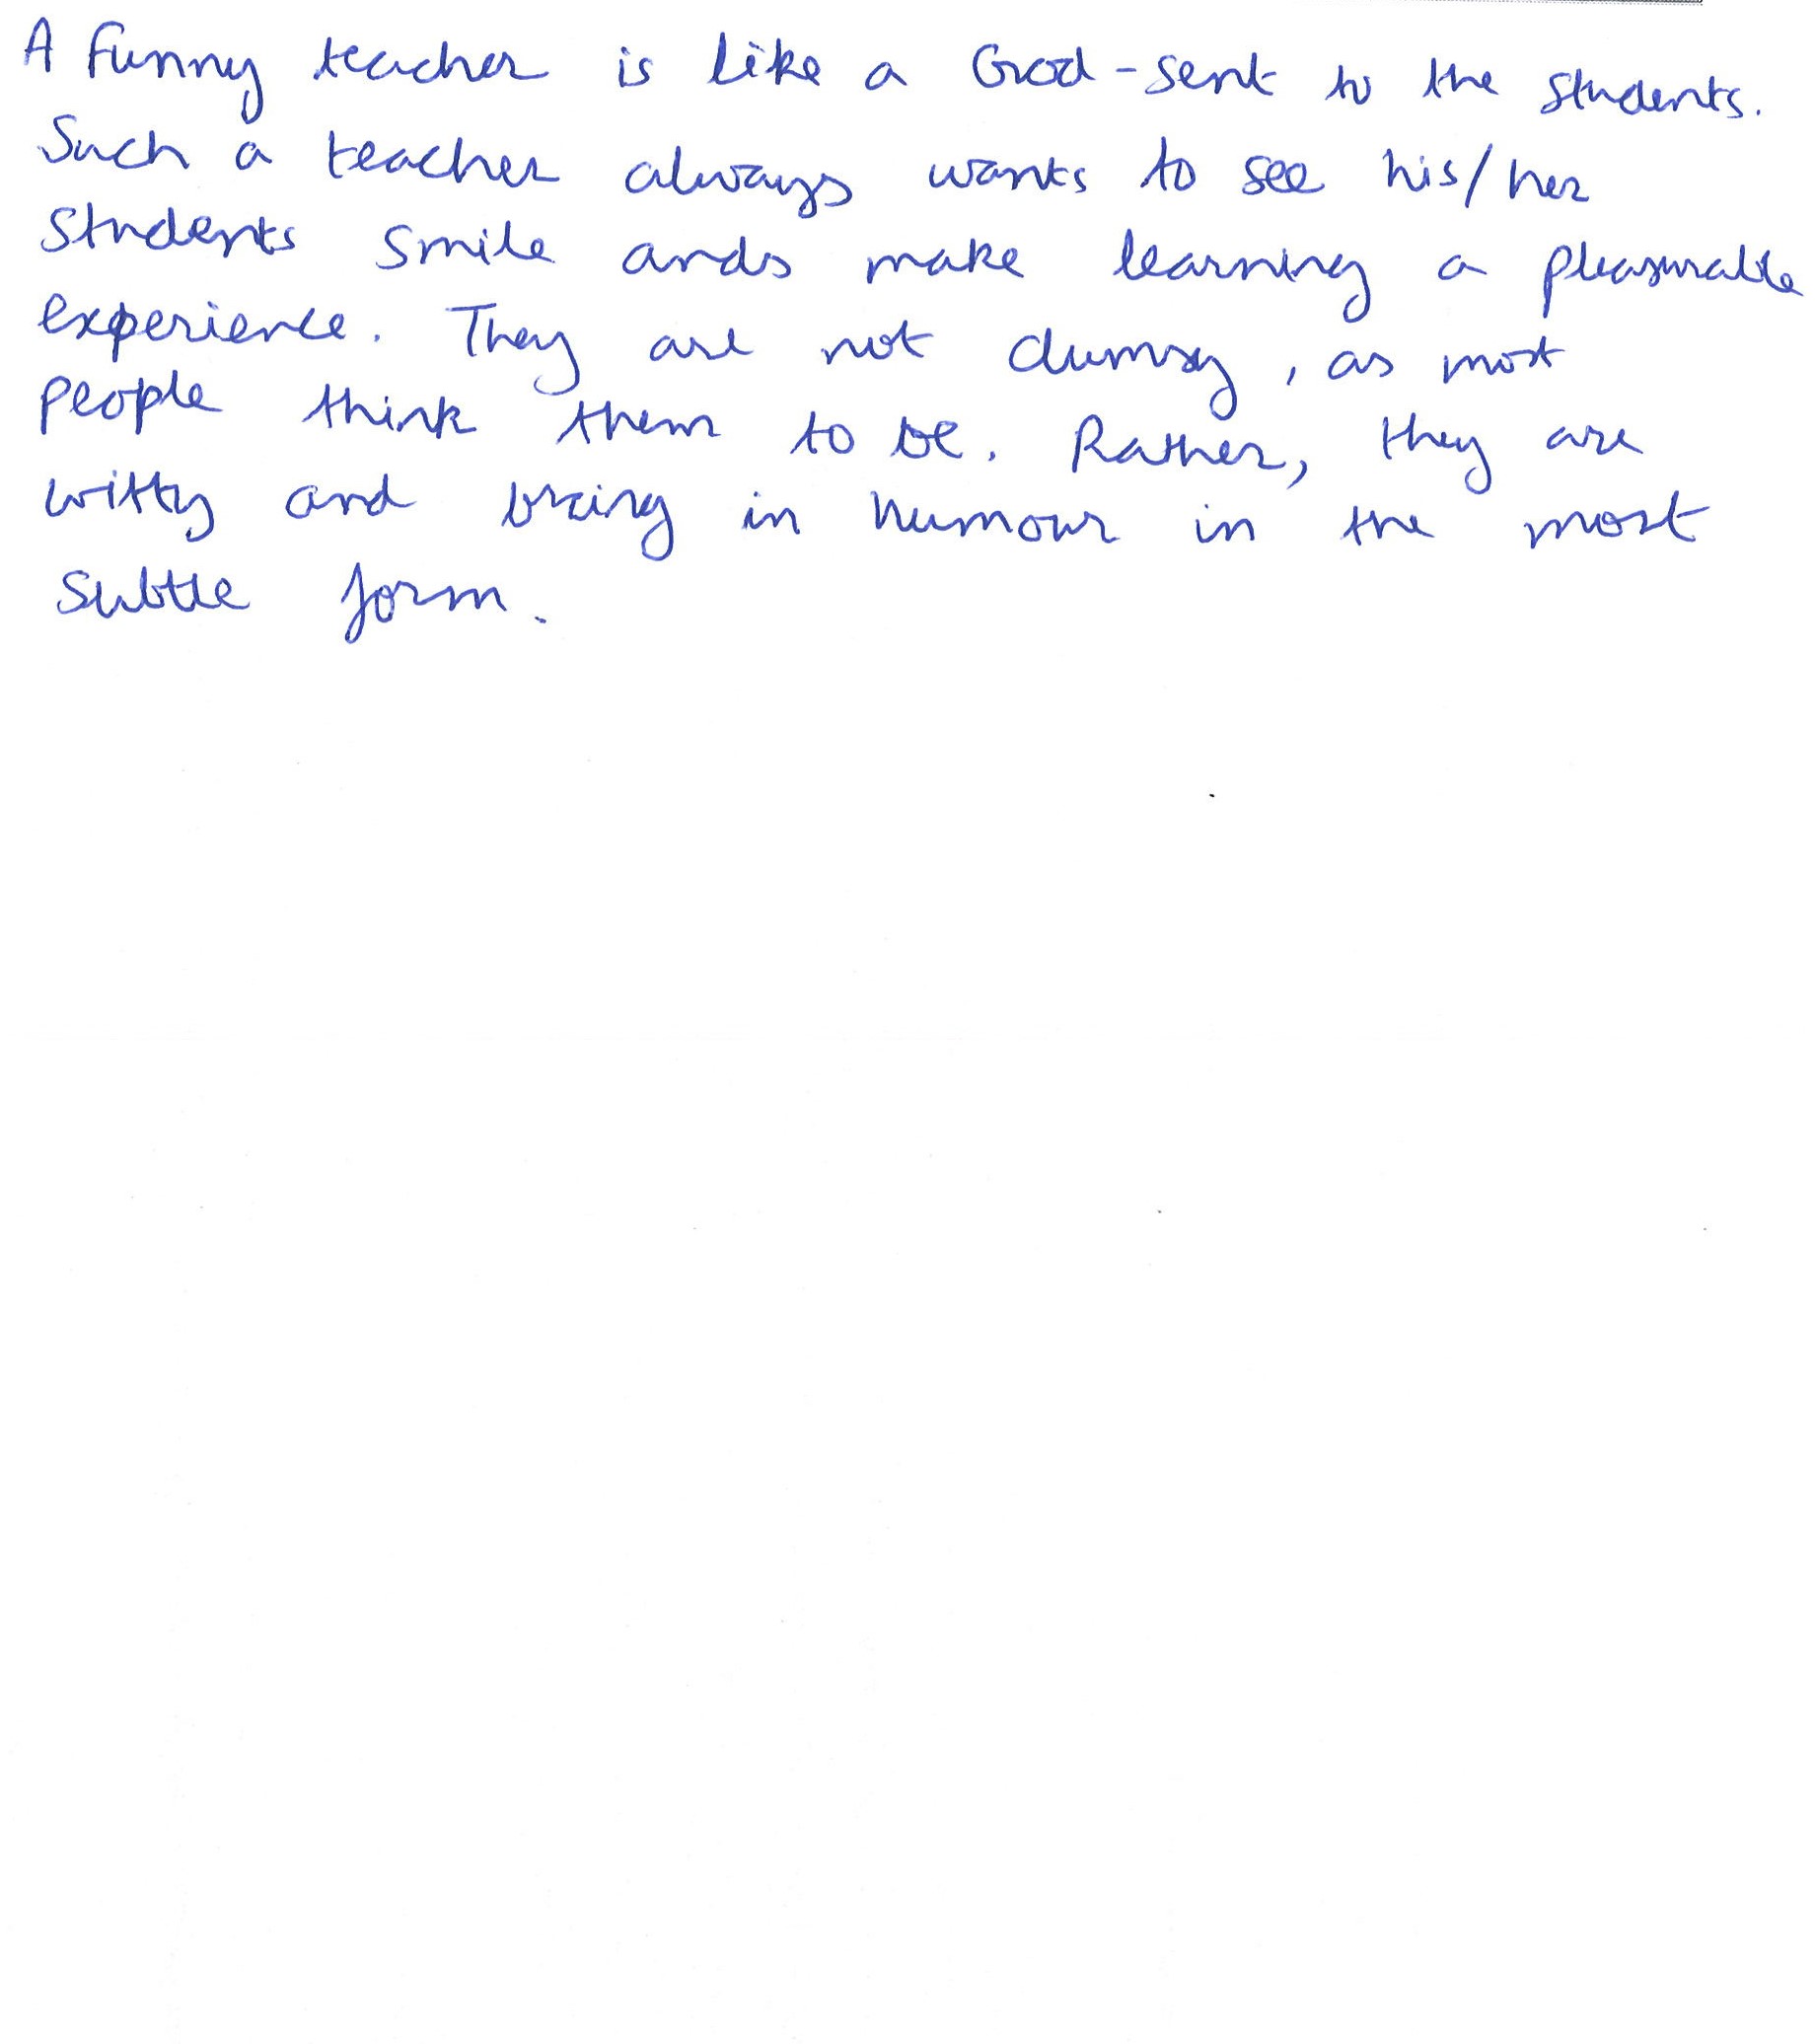 A funny teacher is like a God-sent to the students.
Such a teacher always wants to see his/her
students smile ands make learning a pleasurable
experience. They are not clumsy, as most
people think them to be. Rather, they are
witty and bring in humour in the most
subtle form.